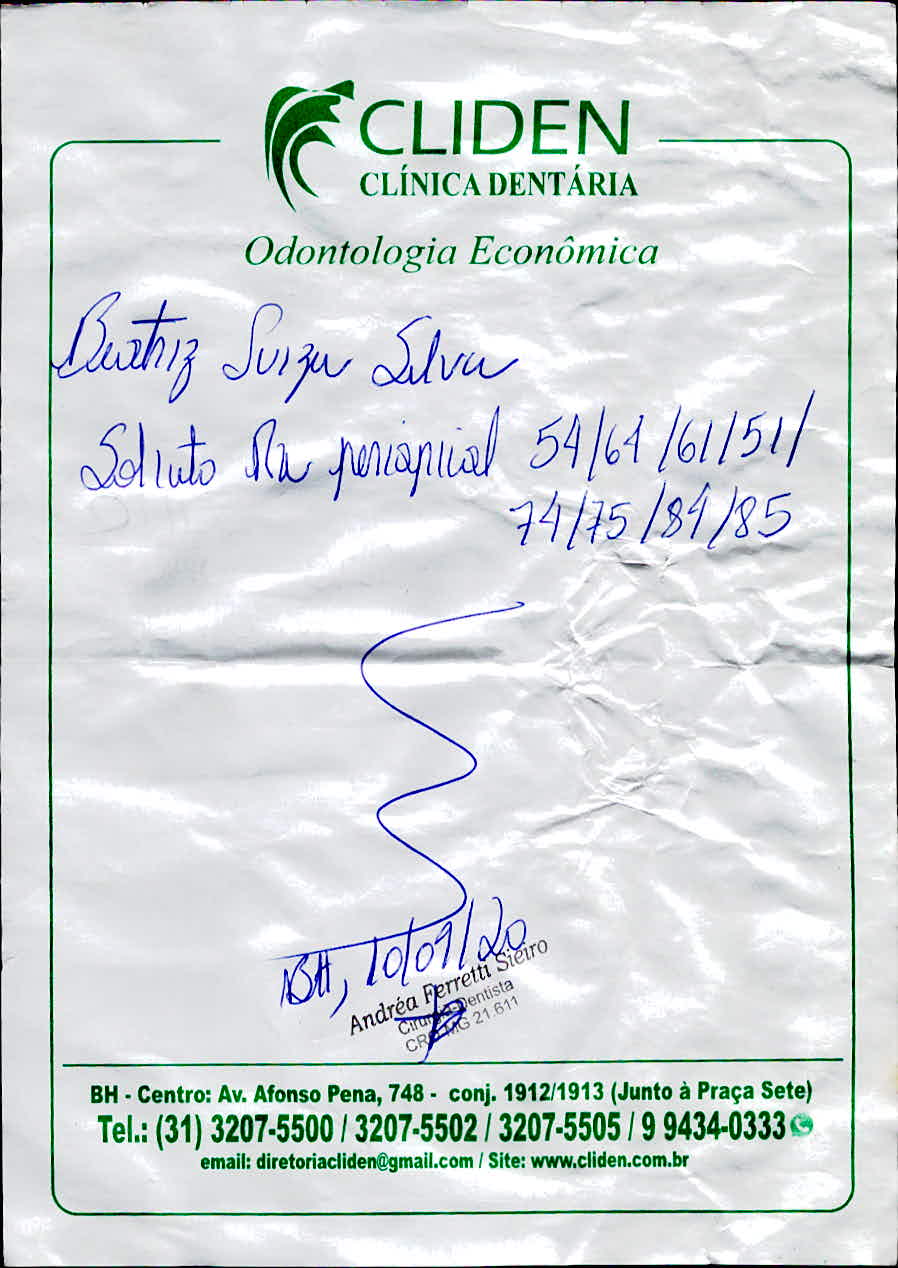 CLIDEN
CLÍNICA DENTÁRIA
Odontologia Econômica
Beatriz Luiza Silva
Solicito Rx periapical 54/64/61/51/
74/75/84/85
BH, 10/09/20
Andréa Ferretti Sieiro
Cirurgiã-Dentista
CRO MG 21.611
BH - Centro: Av. Afonso Pena, 748 - conj. 1912/1913 (Junto à Praça Sete)
Tel.: (31) 3207-5500 / 3207-5502 / 3207-5505 / 9 9434-0333
email: diretoriacliden@gmail.com / Site: www.cliden.com.br